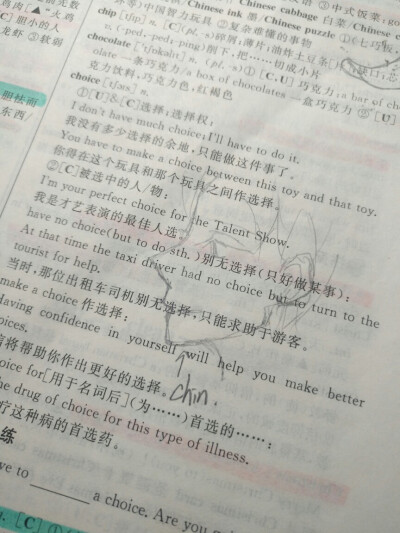 Chinese cabbage 白菜/Chinese c
等)中国智力玩具 ②复杂难懂的事物
chip [tʃɪp] n. [C](pl. -s)碎屑;薄片;油炸土豆条[片]
v. (-ped, -ped; -ping)削下,把……切成小片
colate [ˈtʃɒkələt] n. (pl. -s) ① [C, U] 巧克力:a bar of cho
colate 一条巧克力/a box of chocolates 一盒巧克力 ② [U]
克力饮料;巧克力色,红褐色
choice [tʃɔɪs] n.
①[U]&[C]选择;选择权:
I don't have much choice; I'll have to do it.
我没有多少选择的余地,只能做这件事了。
You have to make a choice between this toy and that toy.
你得在这个玩具和那个玩具之间作选择。
②[C]被选中的人/物:
I'm your perfect choice for the Talent Show.
我是才艺表演的最佳人选。
have no choice(but to do sth.)别无选择(只好做某事):
At that time the taxi driver had no choice but to turn to the
tourist for help.
当时,那位出租车司机别无选择,只能求助于游客。
make a choice 作选择:
Having confidence in yourself will help you make better
oices.
将帮助你作出更好的选择。
chin.
oice for[用于名词后](为……)首选的……:
he drug of choice for this type of illness.
疗这种病的首选药。
练
ve to ______ a choice. Are you
[C]
胆怯而
东西
[C] 胆小的人
龙虾 ③软弱